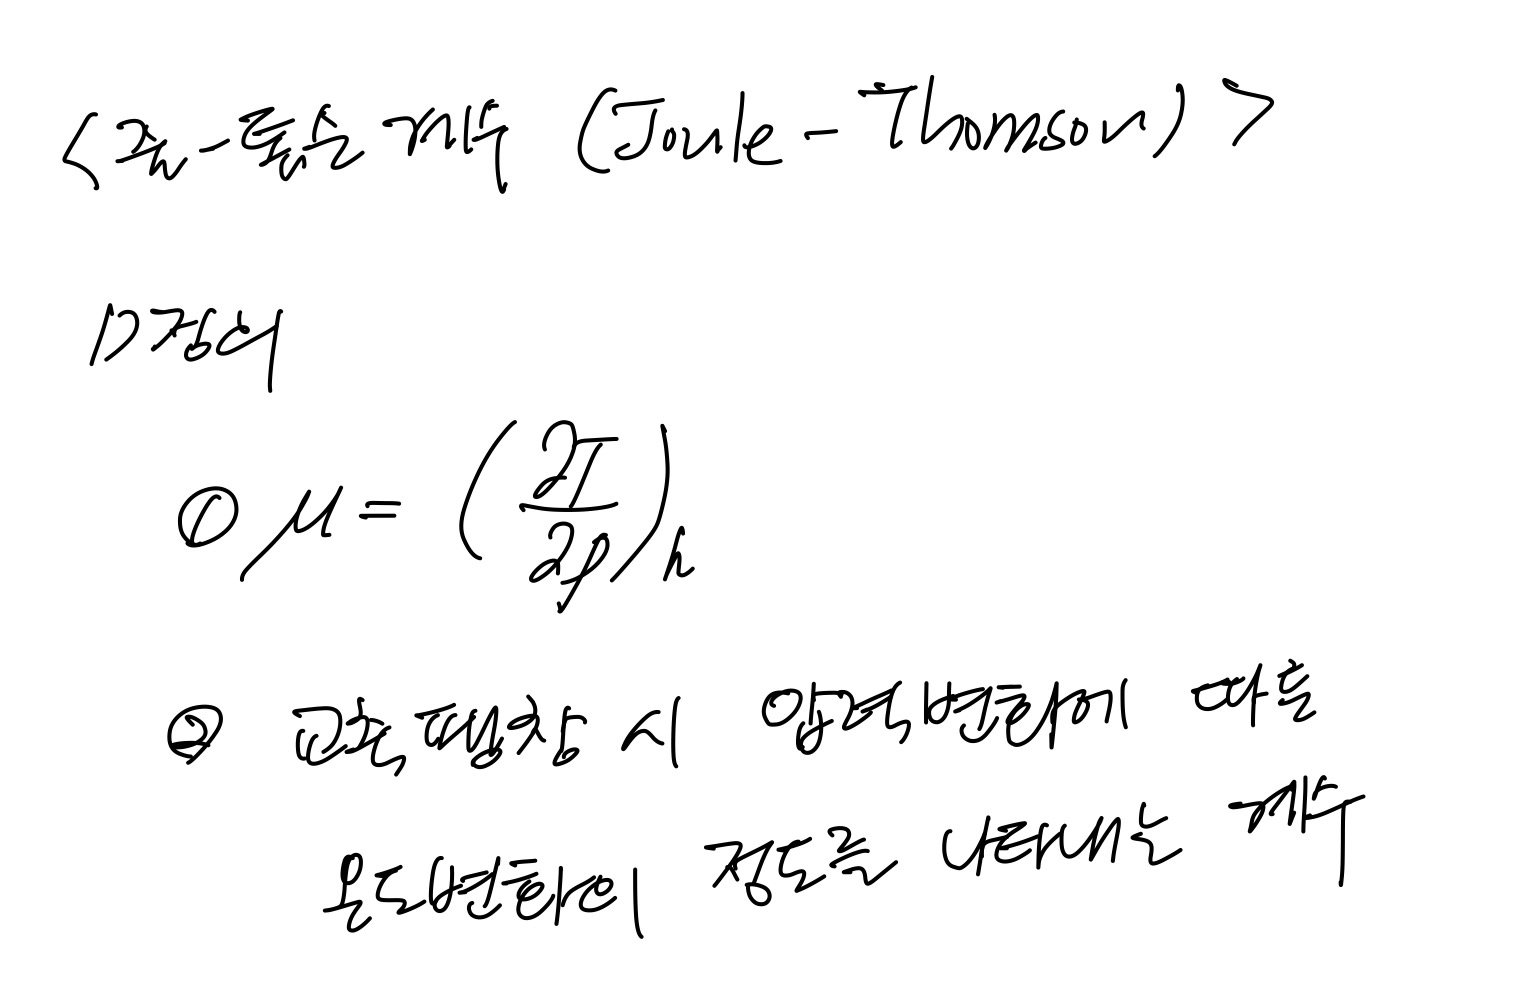 <줄-톰슨 계수 (Joule-Thomson)>
1) 정의
① μ = (∂T/∂p)h
② 교축팽창 시 압력변화에 따른
온도변화의 정도를 나타내는 계수